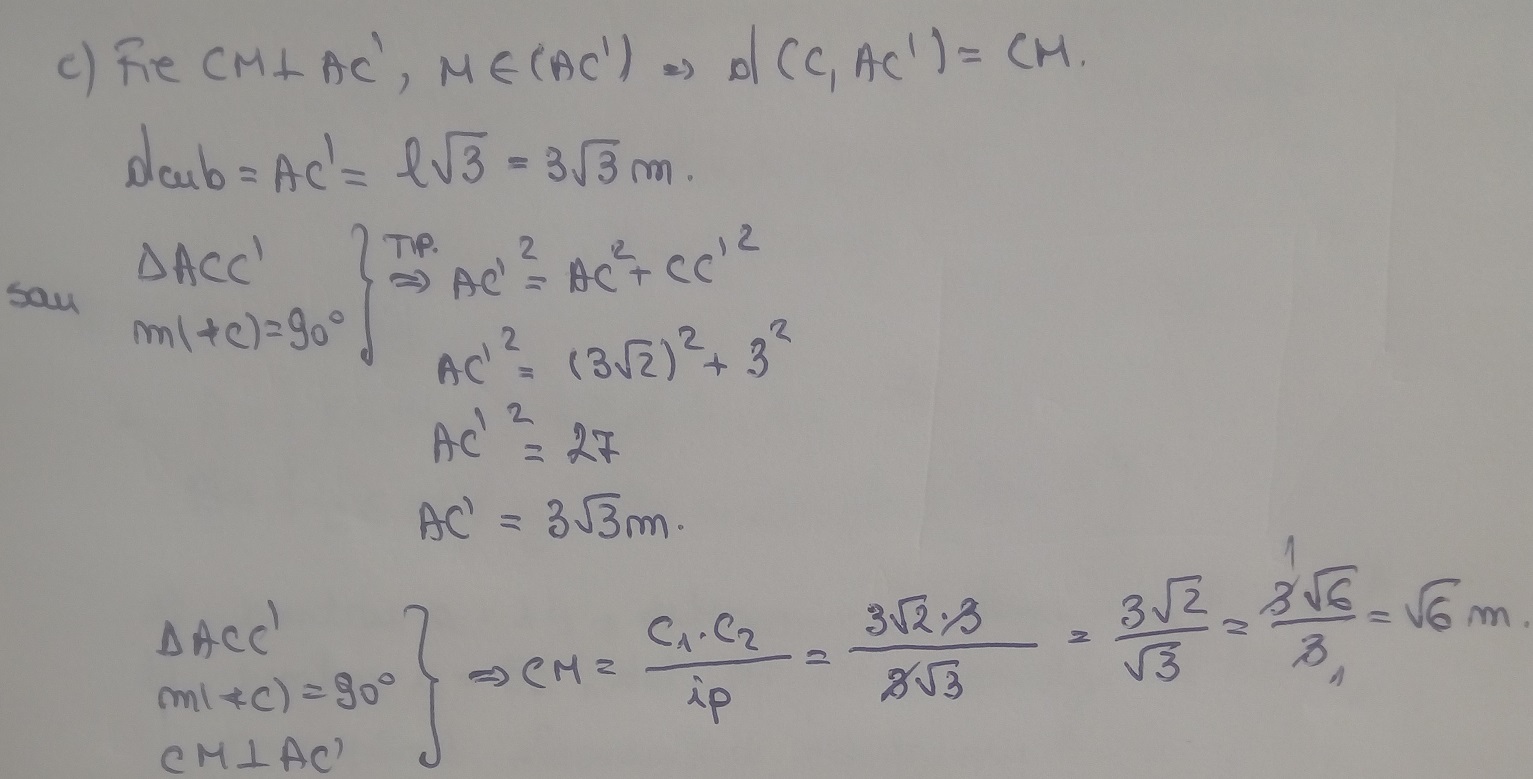 c) Fie CM⊥AC', M∈(AC') ⇒ d(C, AC') = CM.
dcub = AC' = l√3 = 3√3 m.
sau ΔACC'
m(∢C)=90° } T.P. ⇒ AC'² = AC² + CC'²
AC'² = (3√2)² + 3²
AC'² = 27
AC' = 3√3 m.
ΔACC'
m(∢C) = 90° } ⇒ CM = C₁·C₂/ip = 3√2·3/3√3 = 3√2/√3 = 3√6/3 = √6 m.
CM⊥AC'